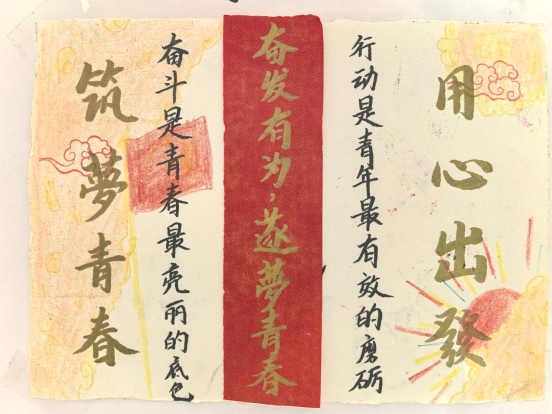 用心出發
行动是青年最有效的磨砺
奋发有为，逐夢青春
奋斗是青春最亮丽的底色
筑夢青春